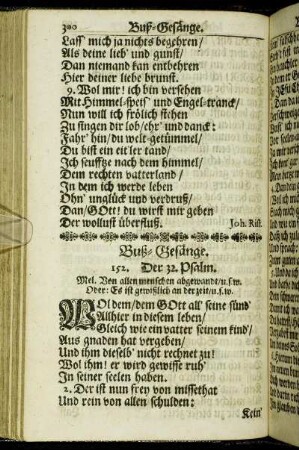 300 Buß-Gesänge.
Lass' mich ja nichts begehren/
Als deine lieb' und gunst/
Dan niemand kan entbehren
Hier deiner liebe brunst.
9. Wol mir! ich bin versehen
Mit Himmel-speis' und Engel-tranck/
Nun will ich frölich stehen
Zu singen dir lob/ehr' und danck:
Fahr' hin/du welt-getümmel/
Du bist ein eitler tand/
Ich seufftze nach dem himmel/
Dem rechten vatterland/
In dem ich werde leben
Ohn' unglück und verdruß/
Dan/GOtt! du wirst mir geben
Der wollust überfluß. Joh. Rist.
Buß-Gesänge.
152. Der 32. Psalm.
Mel. Von allen menschen abgewandt/u.s.w.
Oder: Es ist gewißlich an der zeit/u.s.w.
WOl dem/dem GOtt all' seine sünd'
Allhier in diesem leben/
Gleich wie ein vatter seinem kind/
Aus gnaden hat vergeben/
Und ihm dieselb' nicht rechnet zu!
Wol ihm! er wird gewisse ruh'
In seiner seelen haben.
2. Der ist nun frey von missethat
Und rein von allen schulden:
Kein'